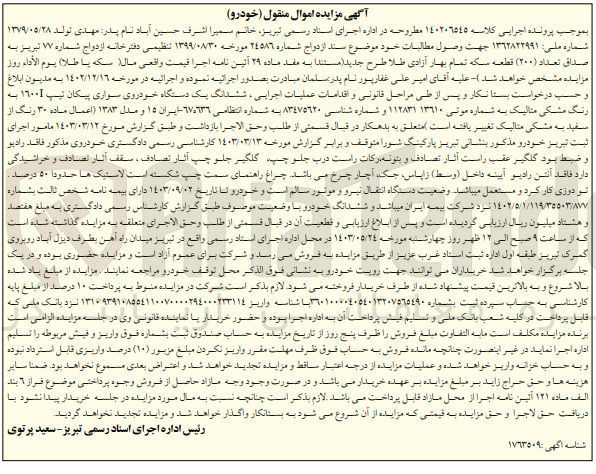 آگهی مزایده اموال منقول (خودرو)
بموجب پرونده اجرایی کلاسه ۱۴۰۲۰۶۵۴۵ مطروحه در اداره اجرای اسناد رسمی تبریز، خانم سمیرا اشرف حسین آباد نام پدر: مهدی تولد ۱۳۷۹/۰۵/۲۸
شماره ملی: ۱۳۶۲۸۲۲۹۹۱ جهت وصول مطالبات خود موضوع سند ازدواج شماره ۲۴۵۸۶ مورخه ۱۳۹۹/۰۸/۳۰ تنظیمی دفترخانه ازدواج شماره ۷۷ تبریز به
صداق تعداد (۲۰۰) قطعه سکه تمام بهار آزادی طلا طرح جدید(مستندا به مفاد ماده ۲۹ آئین نامه اجرا قیمت واقعی مال( سکه یا طلا) یوم الأداء روز
مزایده مشخص خواهد شد )- علیه آقای امیر علی غفارپور نام پدر:سلمان مبادرت بصدور اجرائیه نموده و اجرائیه در مورخه ۱۴۰۲/۱۲/۱۶ به مدیون ابلاغ
و حسب درخواست بستا نکار و پس از طی مراحل قانونی و اقدامات عملیات اجرایی ، ششدانگ یک دستگاه خودروی سواری پیکان تیپ ۱۶۰۰I به
رنگ مشکی متالیک به شماره موتی ۱۱۲۸۳۱ ۱۳۶۱۰ و شماره شناسی ۸۳۴۷۵۶۲۰ به شماره انتظامی ۶۷۵۶۳۶-ایران ۱۵ و مدل ۱۳۸۳ (اعمال ماده ۳۰ رنگ از
سفید به مشکی متالیک تغییر یافته است )متعلق به بدهکار در قبال قسمتی از طلب وحق الاجرا بازداشت و طبق گزارش مورخ ۱۴۰۳/۰۳/۱۲ مامور اجرای
ثبت تبریز خودرو مذکور بنشانی تبریز پارکینگ شورا متوقف و برابر گزارش مورخه ۱۴۰۳/۰۳/۱۳ کارشناسی رسمی دادگستری خودروی مذکور فاقد رادیو
و ضبط بود. گلگیر عقب راست آثار تصادف و بتونه کراث راست درب جلو چپ، گلگیر جلو چپ آثار تصادف ، سقف آثار تصادف و خراشیدگی
دارد فاقد آنتن رادیو آیینه داخل (وسط) زاپاس، جک، آچار چرخ می باشد. چراغ راهنمای سمت چپ شکسته است لاستیک ها حدودا ۵۰ درصد
تو دوزی کار کرد و مستعمل میباشد. وضعیت دستگاه انتقال نیرو و موتور سالم است و خودرو تا تاریخ ۱۴۰۳/۰۹/۰۲ دارای بیمه نامه شخص ثالث بشماره
۱۴۰۲/۵/۱/۱۱۹/۳۵۵۰۳/۸۷۷ نزد شرکت بیمه ایران میباشد و ششدانگ خودرو با وضعیت موصوف طبق گزارش کارشناس رسمی دادگستری به مبلغ هفتصد
و هشتاد میلیون ریال ارزیابی گردیده است و پس از ابلاغ ارزیابی و قطعیت آن در قبال قسمتی از طلب وحق الاجرای متعلقه به مزایده گذاشته شده است
که از ساعت ۹ صبح الی ۱۲ ظهر روز چهارشنبه مورخه ۱۴۰۳/۰۵/۲۴ در محل اداره اجرای اسناد رسمی واقع در تبریز میدان راه آهن بطرف دیزل آباد روبروی
گمرک تبریز طبقه اول اداره ثبت اسناد غرب عزایز از طریق مزایده به فروش می رسد و شرکت برای عموم آزاد است و مزایده حضوری بوده و در یک
جلسه برگزار خواهد شد خریداران می توانند جهت رویت خودرو به نشانی فوق الذکر محل توقف خودرو مراجعه نمایند. مزایده از مبلغ یاد شده
بالا شروع و به بالاترین قیمت پیشنهاد شده از طرف خریدار فروخته می شود. لازم بذکر است شرکت در مزایده منوط به پرداخت ۱۰ درصد از مبلغ پایه
قابل پرداخت در کلیه شعب بانک ملی و تسلیم فیش پرداخت آن به اداره اجرا بوده و حضور خریدار یا نماینده قانونی وی در جلسه مزایده الزامی است
برنده مزایده مکلف است مابه التفاوت مبلغ فروش را ظرف پنج روز از تاریخ مزایده به حساب صندوق ثبت بشماره فوق واریز و فیش مربوطه را تسلیم
اداره اجرا نماید در غیر اینصورت چنانچه مانده فروش به حساب فوق ظرف مهلت مقرر واریز نگردد مبلغ مزبور (۱۰) درصد واریزی قابل استرداد نبوده
و به حساب خزانه واریز خواهد شد و عملیات مزایده از درجه اعتبار ساقط و مزایده تجدید خواهد شد و اعتراض بعدی مسموع نخواهد بود. ضمنا سایر
هزینه ها و حق حراج زاید بر مبلغ مزایده بر عهده خریدار می باشد و در صورت وجود وجه مازاد حاصل از فروش وجوه پرداختی موضوع فراز ۶ بند
الف ماده ۱۲۱ آئین نامه اجرا از محل مازاد قابل پرداخت می باشد. لازم بذکر است چنانچه نسبت به مال مورد مزایده در جلسه خریدار پیدا نشود با
دریافت حق لاجرا و حق مزایده به قیمتی که مزایده از آن شروع می شود به بستانکار واگذار خواهد شد و مزایده تجدید نخواهد گردید.
رئیس اداره اجرای اسناد رسمی تبریز - سعید پرتوی
شناسه آگهی :۱۷۶۳۵۰۹